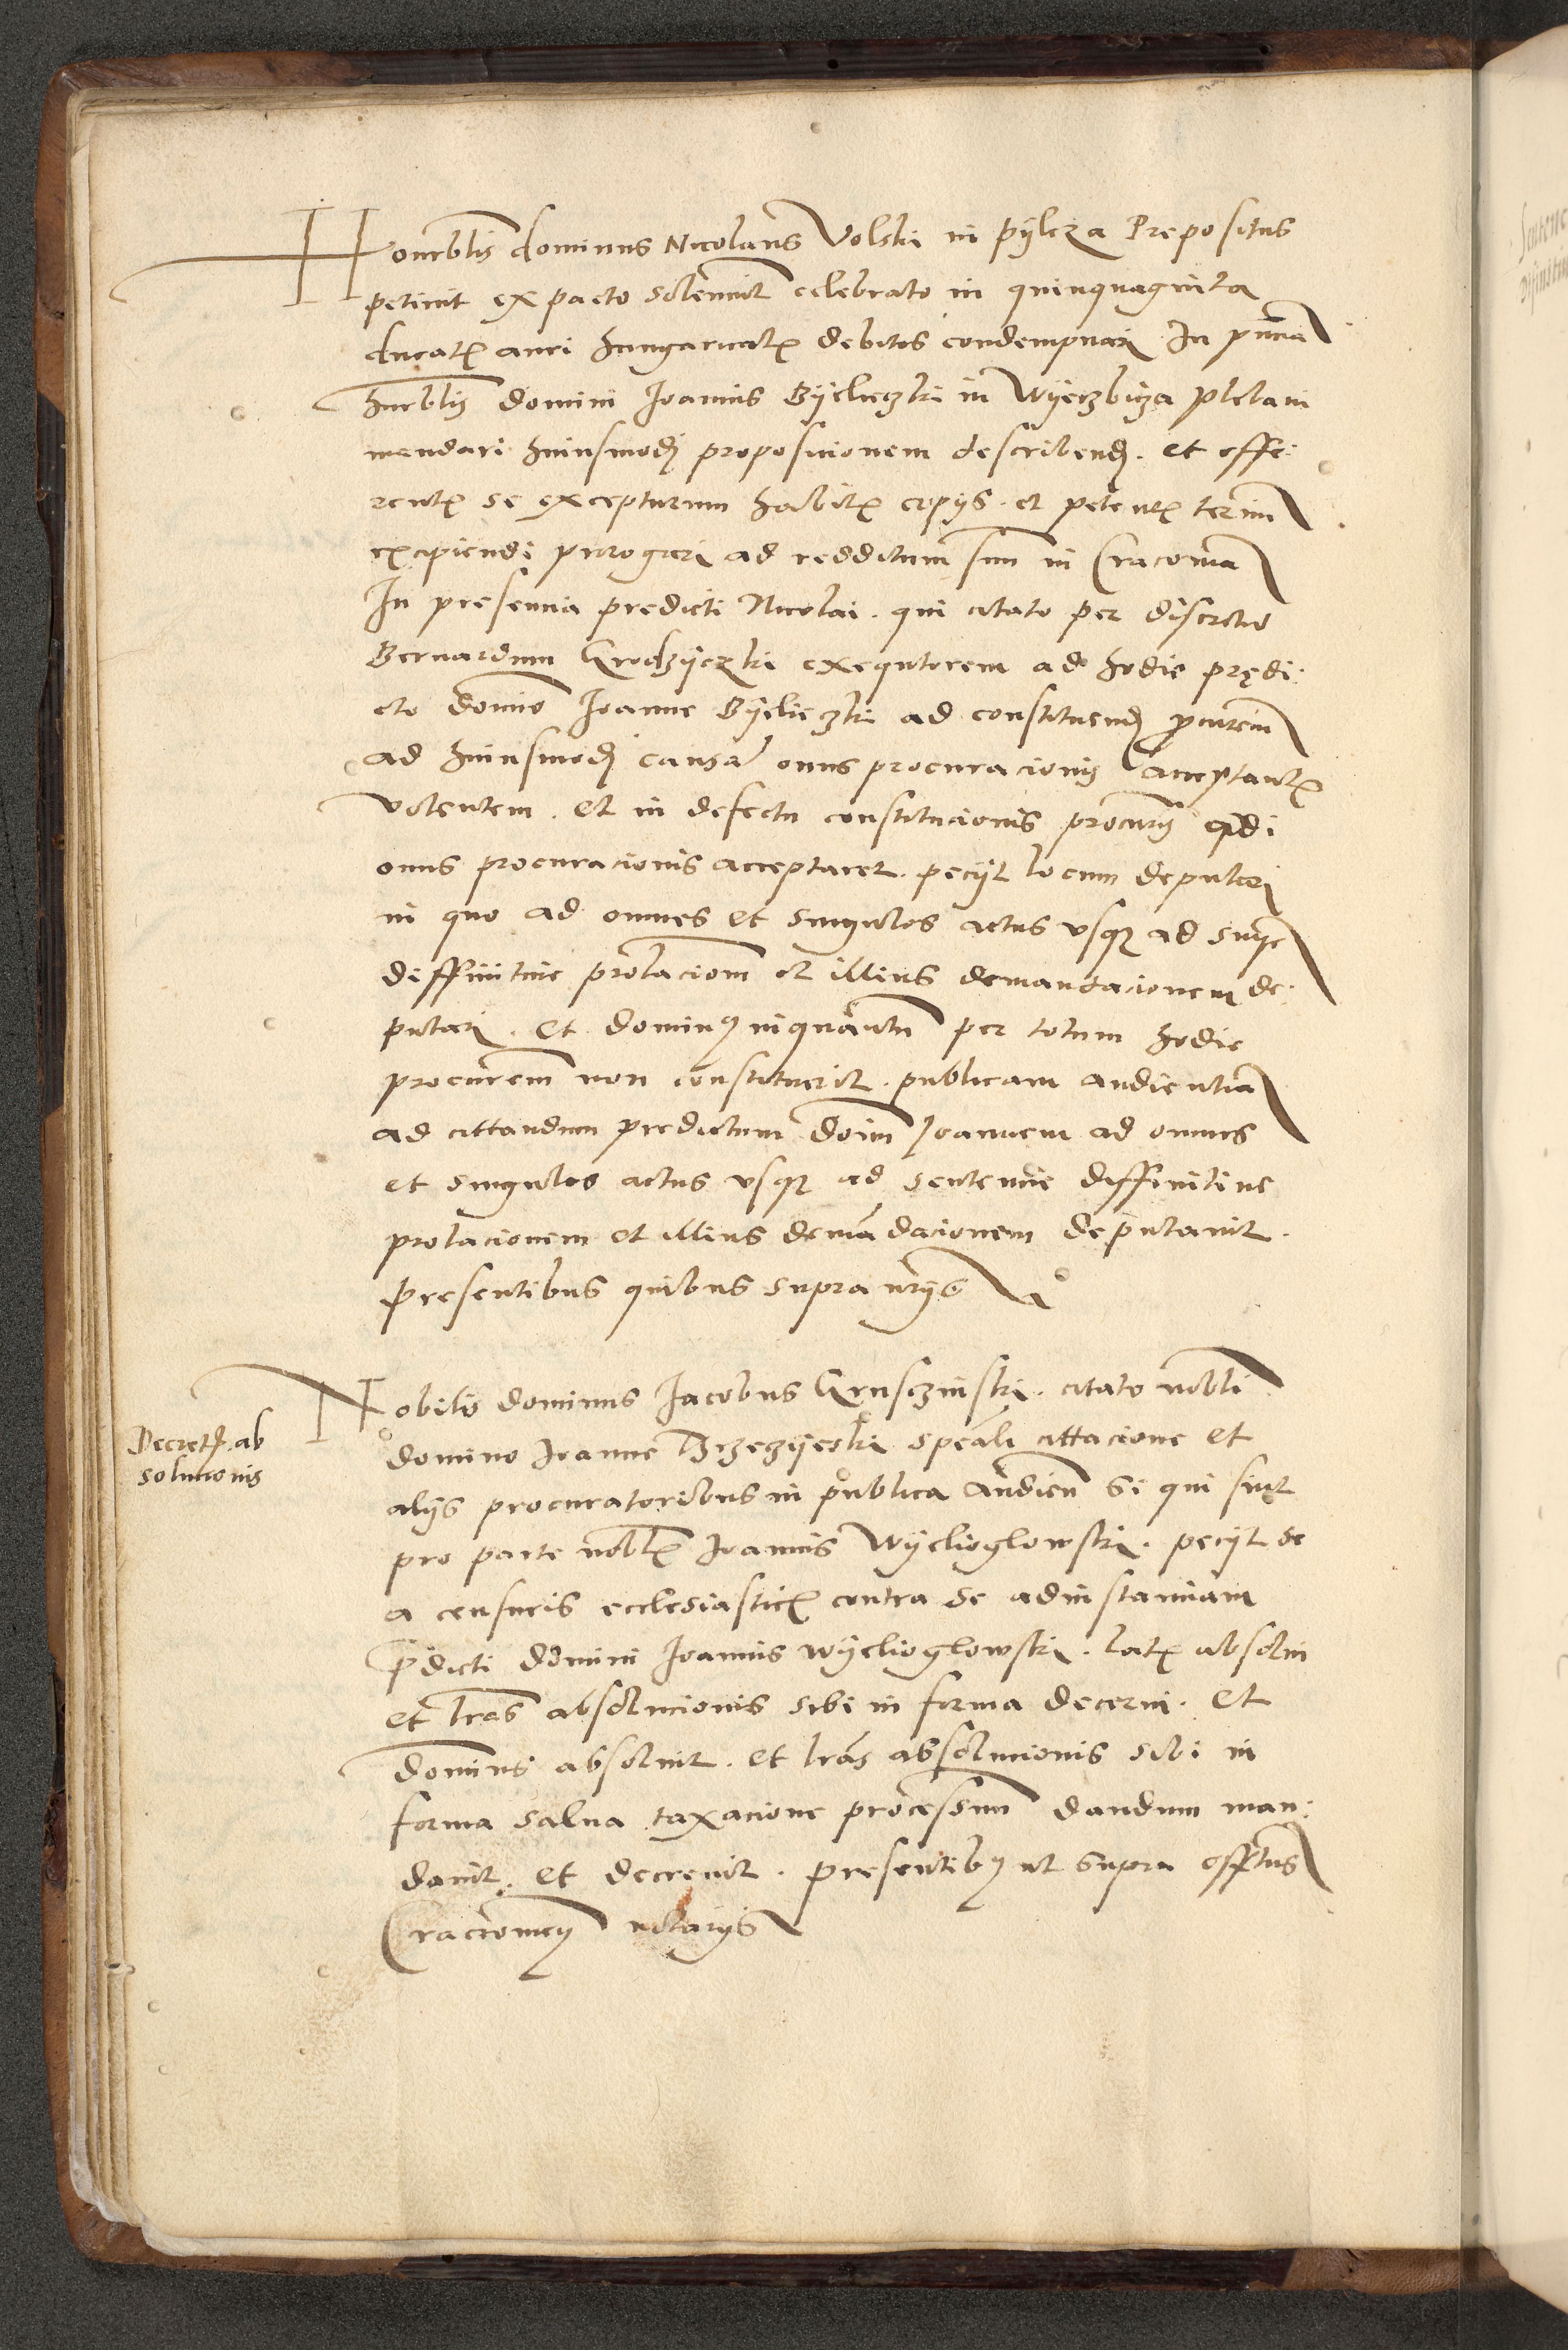 Honorblis dominus Nicolaus Volski in pylcza Prepositus
petiuit ex pacto solemnit celebrato in quinquaginta
ducatis auri hungaricalis debitos condempnari In pncia
hnrblis domini Joannis Byeliczki in Wyerzbicza plebani
mandari huiusmodi proposicionem describendi. et offe:
rentis se excepturum habitis copijs. et petentis termi
excipiendi prorogari ad redditum suu in Cracouia
In presencia predicti Nicolai. qui citato per discretu
Bernardum Grodzyeczki exequtorem ad hodie prędi:
cto domino Joanne Byelieczki ad constituendu procurem
ad huiusmodi causa onus procuracionis acceptante
volentem. et in defectu constitucionis procuris
onus procuracionis acceptaret. pecijt locum deputari
in quo ad omnes et singulos actus vsque ad snye
diffinitiue prolaciom et illius demandacionem de:
putari. et dominus inquantu per totum hodie
procurem non constituerit. publicam audientia
ad cittandum predictum doim Joannem ad omnes
et singulos actus vsque ad sentencie diffinitiue
prolacionem et illius demadacionem deputauit.
presentibus quibus supra nrijs
Nobilis dominus Jacobus Gruszinski. citato nobli
Decretu ab
solucionis
domino Joanne Brzezyeski speali cittacione et
alijs procuratoribus in publica audien si qui sint
pro parte noblis Joannis Wyelioglowski. pecijt se
a censuris ecclesiasticis contra se ad instanciam
pdicti domini Joannis Wyelioglowski. latis absolui
et lras absolucionis sibi in forma decerni. et
dominus absoluit. et lras absolucionis sibi in
forma salua taxacione processuu dandum man:
dauit. et decreuit. presentibus ut supra offitus
Cracouien notarijs